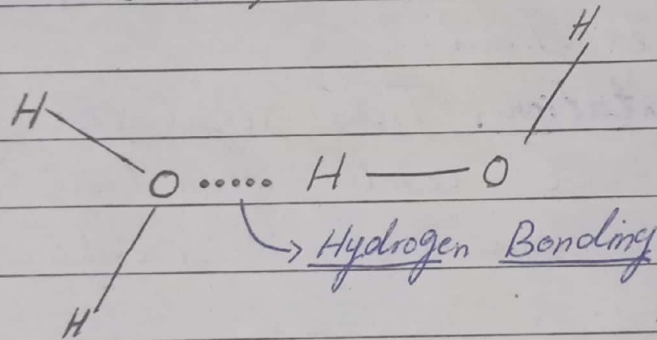 H
H
O ..... H — O
Hydrogen Bonding
H